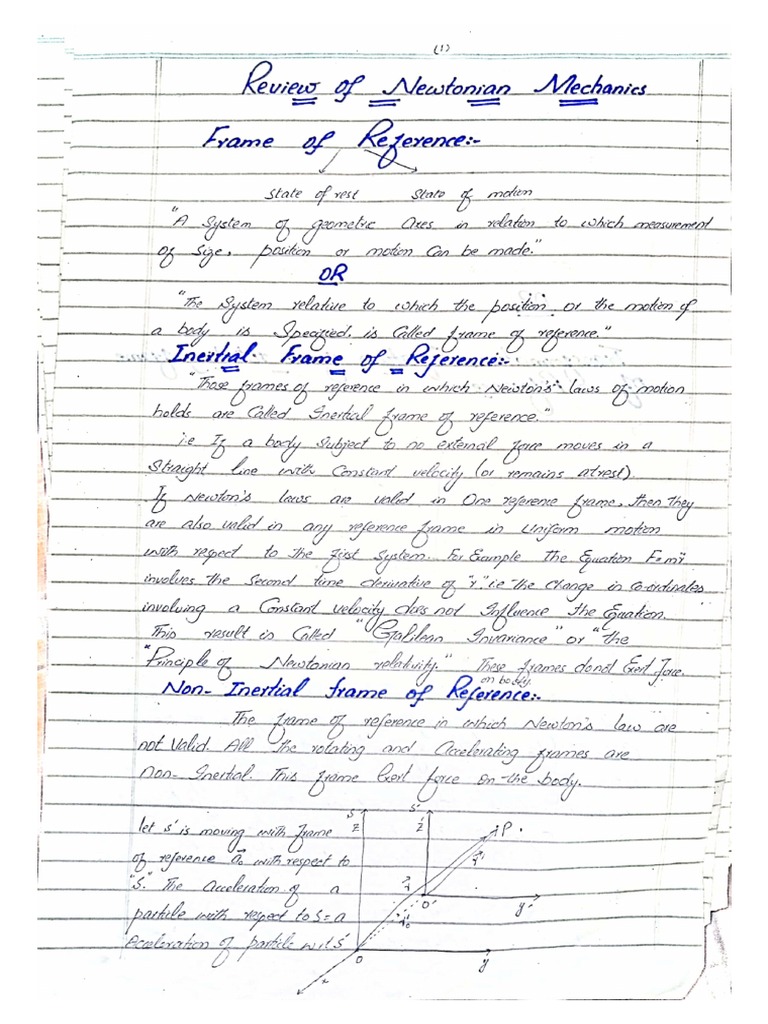 (1)
Review of Newtonian Mechanics
Frame of Reference:-
State of rest State of motion
"A System of geometric axes in relation to which measurement
of Size, position or motion Can be made."
OR
"The System relative to which the position or the motion of
a body is Specified, is Called frame of reference."
Inertial Frame of Reference:-
"Those frames of reference in which Newton's laws of motion
holds are Called Inertial frame of reference."
i.e If a body Subject to no external force moves in a
Straight line with Constant velocity (or remains at rest).
If Newton's laws are valid in One reference frame, then they
are also valid in any reference frame in Uniform motion
with respect to the first System. For Example The Equation F=mr̈
involves the Second time derivative of "r". i.e the change in Co-ordinates
involving a Constant velocity does not Influence The Equation.
This result is Called "Galilean Invariance" or "the
"Principle of Newtonian relativity." These frames donot Exert force
on body
Non-Inertial frame of Reference:-
The frame of reference in which Newton's law are
not Valid. All The rotating and Accelerating frames are
Non-Inertial. This frame Exert force on the body.
let s' is moving with frame
of reference a⃗₀ with respect to
"S." The acceleration of a
particle with respect to S = a
Acceleration of particle w.r.t s'
S
Z
S'
Z'
P.
r⃗
r⃗'
r⃗₀
O'
y'
O
y
x